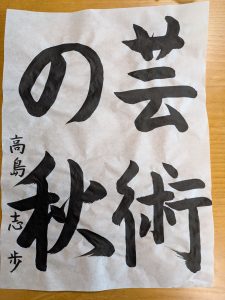 芸術
の秋
高島志歩